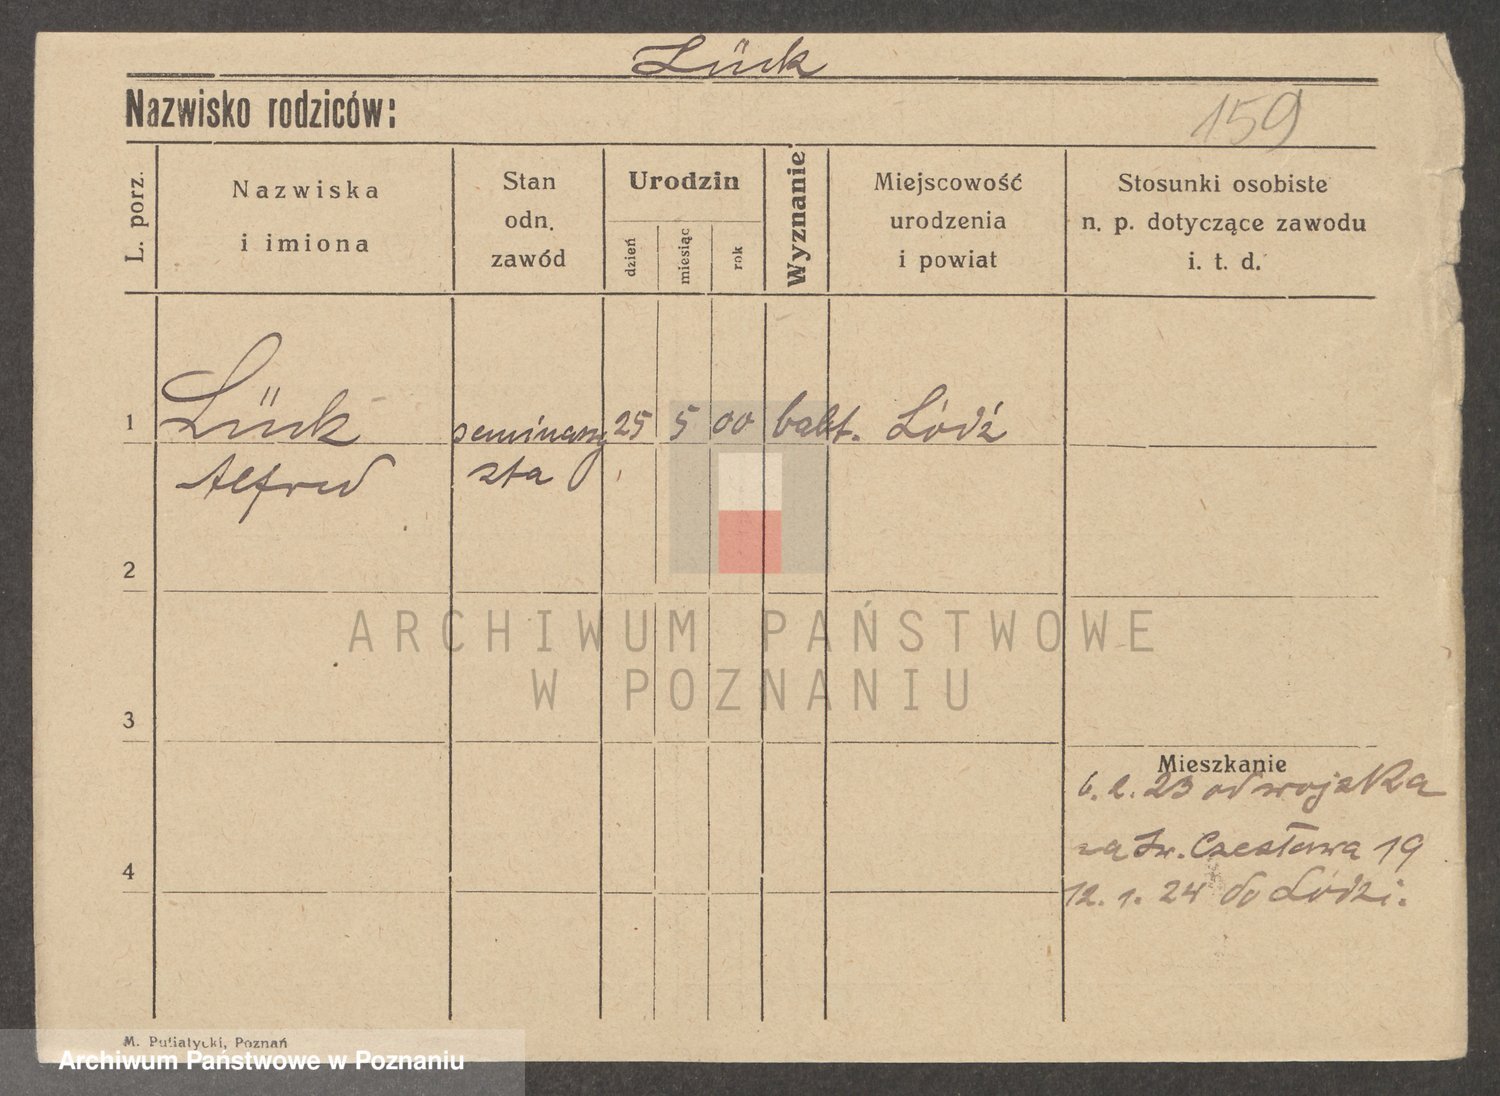 Lück
Nazwisko rodziców:
159
L. porz.
Nazwiska
i imiona
Stan
odn.
zawód
Urodzin
dzień
miesiąc
rok
Wyznanie
Miejscowość
urodzenia
i powiat
Stosunki osobiste
n. p. dotyczące zawodu
i. t. d.
1
Lück
Alfred
seminarzy
sta
25
5
00
babt.
Łódź
2
ARCHIWUM PAŃSTWOWE
W POZNANIU
3
Mieszkanie
6. 2. 23 od wojska
na Św. Czesława 19
4
12. 1. 24 do Łodzi.
M. Putiatycki, Poznań
Archiwum Państwowe w Poznaniu